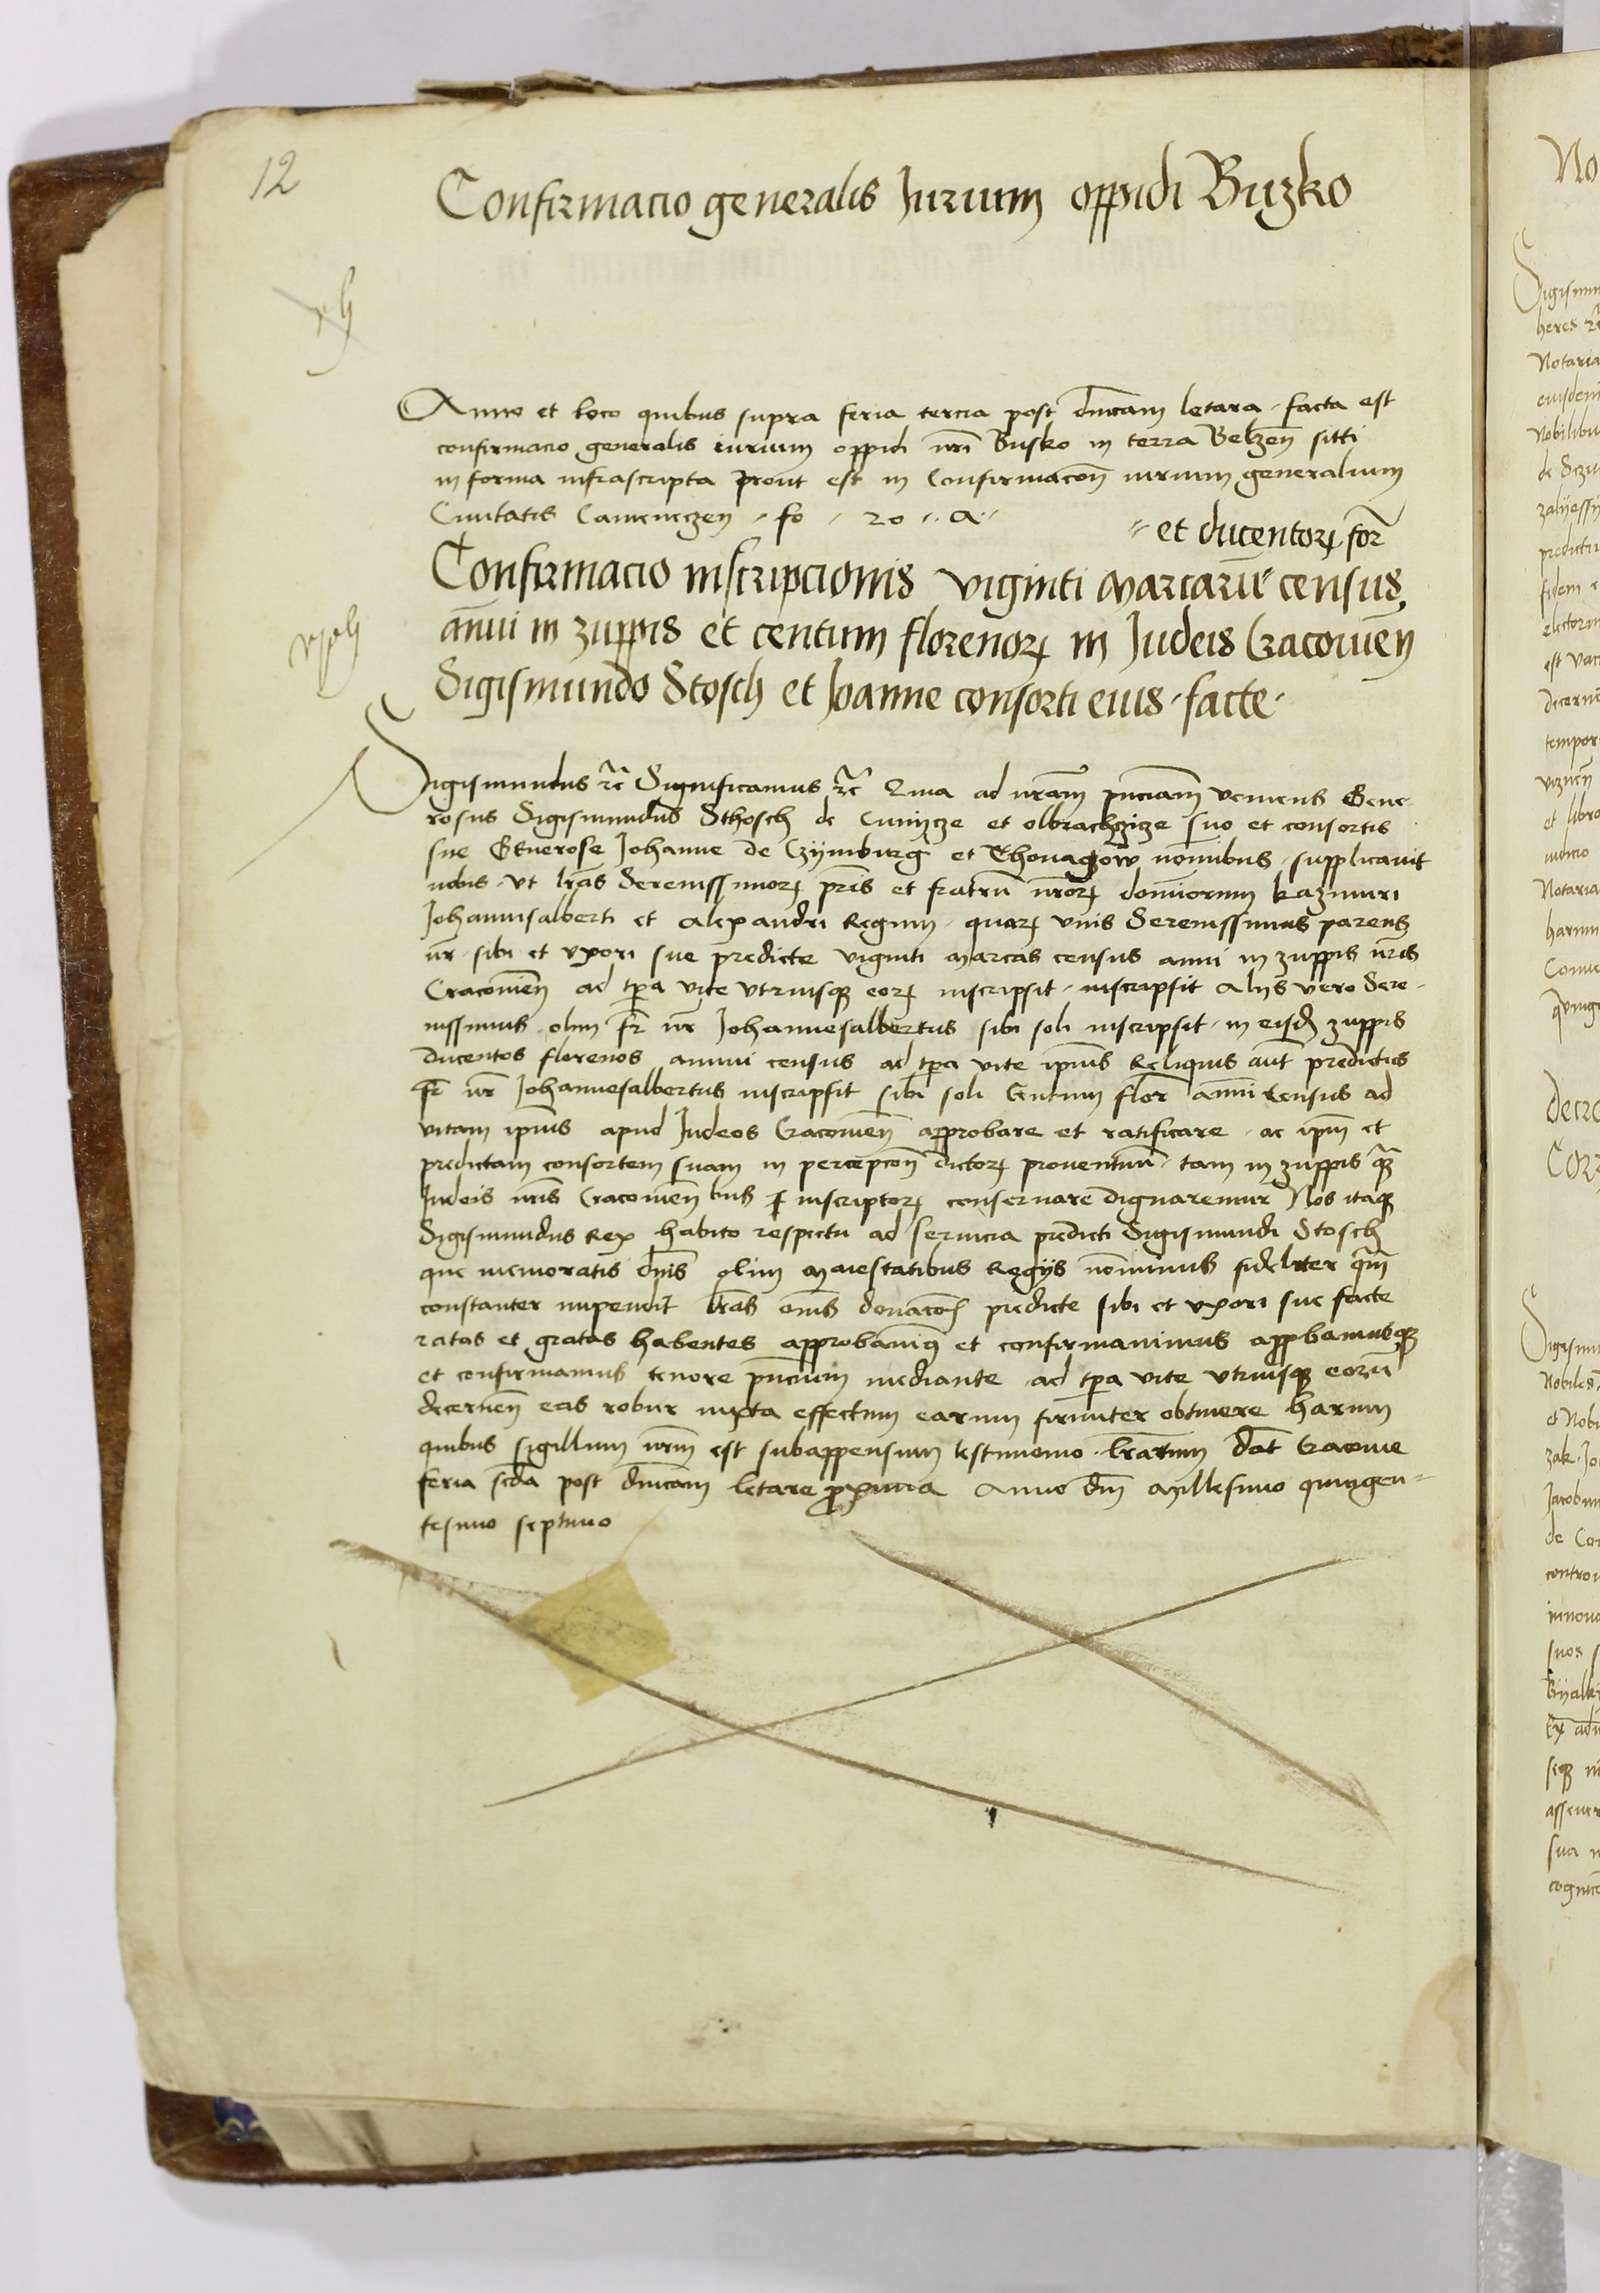 12
Confirmacio generalis Jurium oppidi Buzko
Anno et loco quibus supra feria tercia post dnicam letara facta est
confirmacio generalis iurium oppidi nri Busko in terra Belzen sitti
in forma infrascripta prout est in Confirmacone iurium generalium
Civitatis Cameneczen fo 20 a
et ducentor flor
Confirmacio inscripcionis viginti marcaru census
annui in zuppis et centum florenor in Judeis Cracovien
Sigismundo Stosch et Joanne consorti eius facte
Sigismundus rc Significamus rc Quia ad nram pnciam veniens Gene
rosus Sigismundus Sthosch de et olbrachczicze suo et consortis
sue Generose Johanne de Czymburg et Thovaczow nominibus supplicavit
nobis vt lras Serenissimor pris et fratru nror dominorum kazimiri
Johannisalberti et Alexandri Regum quar vnis Serenissimus parens
nr sibi et vxori sue predicte viginti marcas census anni in zuppis nris
Cracovien ad tpa vite vtriusq eor inscripsit inscripsit Alijs vero Sere
nissimus olim fr nr Johannesalbertus sibi soli inscripsit in eisd zuppis
ducentos florenos annui census ad tpa vite ipius Reliquis aut predictus
fr nr Johannesalbertus inscripsit sibi soli Centum flor anni Census ad
vitam ipius apud Judeos Cracovien approbare et ratificare ac ipm et
predictam consortem suam in percepcon dictor proventuu tam in zuppis q
Judeis nris Cracovien inscriptor conservare dignaremur Nos itaq
Sigismundus Rex habito respectu ad servicia predicti Sigismundi Stosch
que memoratis dnis olim maiestatibus Regijs fideliter qm
constanter impendit lras donacon predicte sibi et vxori sue facte
ratas et gratas habentes approbavimus et confirmavimus appbamusq
et confirmamus tenore pncium mediante ad tpa vite vtriusq eoru
decernen eas robur iuxta effectum earum firmiter obtinere harum
quibus sigillum nrm est subappensum testimonio lrarum Dat Cracovie
feria scda post dnicam letare proxima Anno dni Millesimo quingen
tesimo septimo